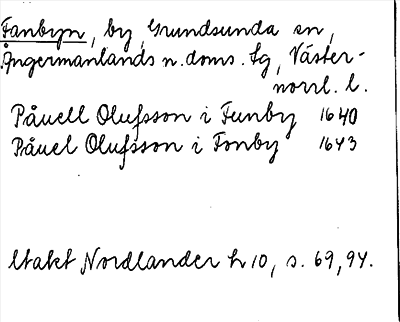 Fanbyn, by, Grundsunda sn,
Ångermanlands n. doms. sg, Väster-
norrl. l.
Påuell Olufsson i Funby 1640
Påuel Olufsson i Fonby 1643
Utakt Nordlander h 10, s. 69, 94.